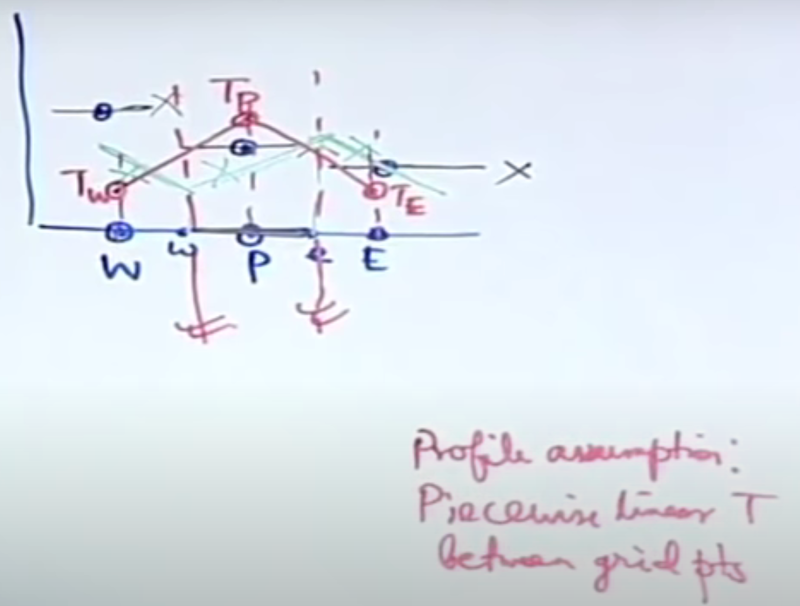 T_P
T_W
T_E
W w P e E
Profile assumption:
Piecewise linear T
between grid pts